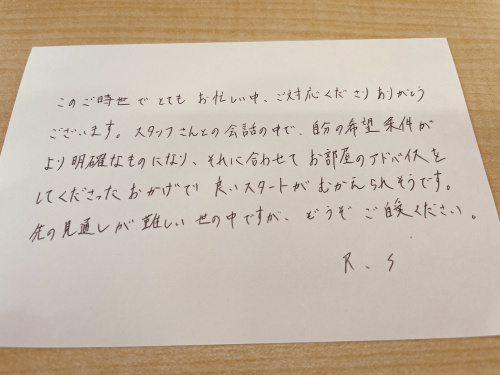 このご時世でとてもお忙しい中、ご対応くださりありがとう
ございます。スタッフさんとの会話の中で、自分の希望条件が
より明確なものになり、それに合わせてお部屋のアドバイスを
してくださったおかげで良いスタートがむかえられそうです。
先の見通しが難しい世の中ですが、どうぞご自愛ください。
R、S